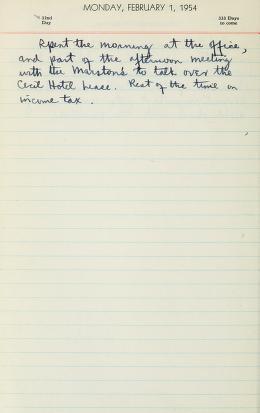 MONDAY, FEBRUARY 1, 1954
32nd
Day
333 Days
to come
Spent the morning at the office,
and part of the afternoon meeting
with the Marston's to talk over the
Cecil Hotel Lease. Rest of the time on
income tax.